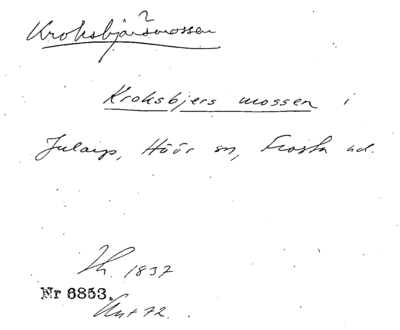 ?
Kroksbjärsmossen
Kroksbjers mossen i
Jularp, Höör sn, Frosta hd.
Th. 1837
Nr 6853.
Avt 72.